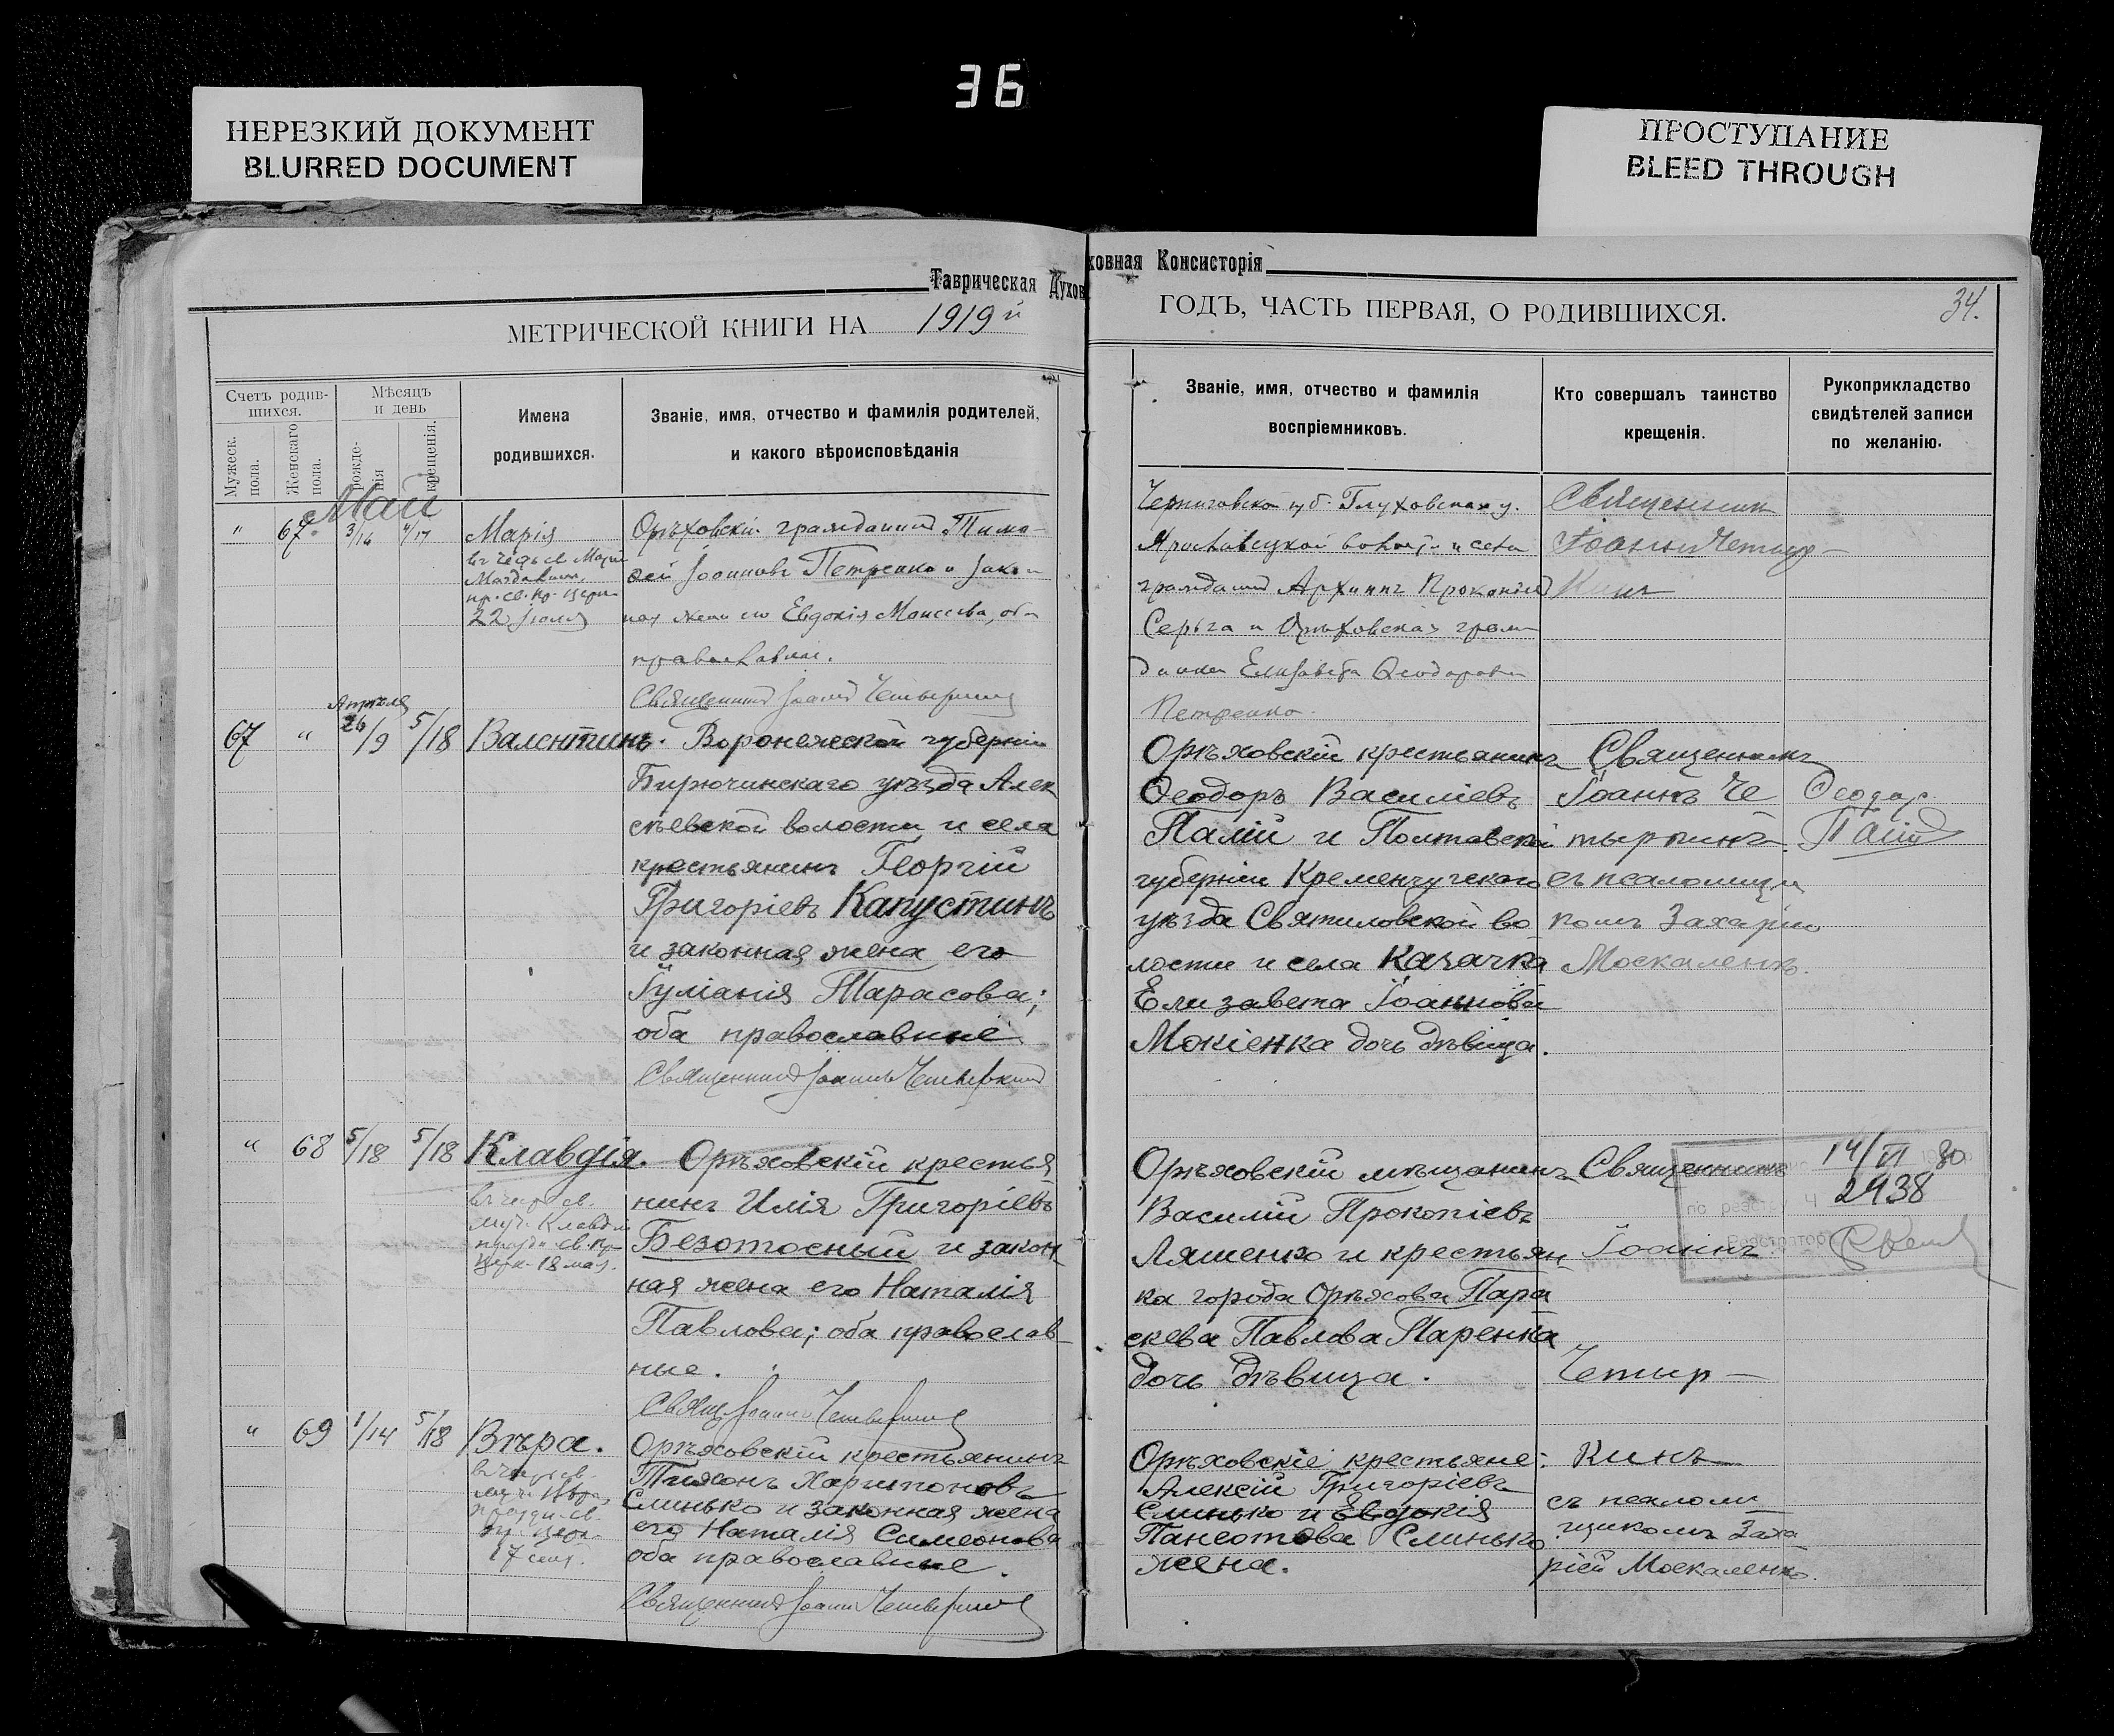 36
НЕРЕЗКИЙ ДОКУМЕНТ
BLURRED DOCUMENT
ПРОСТУПАНИЕ
BLEED THROUGH
Таврическая Духов
ховная Консисторія
МЕТРИЧЕСКОЙ КНИГИ НА 1919й
ГОДЪ, ЧАСТЬ ПЕРВАЯ, О РОДИВШИХСЯ.
34.
Счетъ родив-
шихся.
Мужеск.
пола.
Женскаго
пола.
Мѣсяцъ
и день
рожде-
нія
крещенія.
Имена
родившихся.
Званіе, имя, отчество и фамилія родителей,
и какого вѣроисповѣданія
Званіе, имя, отчество и фамилія
воспріемниковъ.
Кто совершалъ таинство
крещенія.
Рукоприкладство
свидѣтелей записи
по желанію.
Май
" 67 3/16 4/17 Марія
22 Іюля
Орѣховскій гражданинъ Тимо-
фей Іоанновъ Петренко и закон
ная жена его Евдокія Моисеева, оба
православные.
Священникъ Іоаннъ Четыркинъ
Черниговской губ. Глуховскаго у.
Ярославецкой волости и села
гражданинъ Архиппъ Прокопіевъ
Серьга и Орѣховская граж
данка Елизавета Ѳеодорова
Петренко.
Священникъ
Іоаннъ Четыр-
Кинъ
Апрѣля
67 " 26/9 5/18 Валентинъ.
Воронежской губерніи
Бирючинскаго уѣзда Алек
сѣевской волости и села
крестьянинъ Георгій
Григоріевъ Капустинъ
и законная жена его
Іуліанія Тарасова;
оба православные
Священникъ Іоаннъ Четыркинъ
Орѣховскій крестьянинъ
Ѳеодоръ Василіевъ
Палій и Полтавской
губерніи Кременчугскаго
уѣзда Святиловской во
лости и села Казачка
Елизавета Іоаннова
Мокіенка дочь дѣвица.
Священникъ
Іоаннъ Че
тыркинъ
съ псаломщи
комъ Захаріею
Москаленко.
Ѳеодоръ
Палій
" 68 5/18 5/18 Клавдія.
муч. Клавдіи
18 мая.
Орѣховскій крестья
нинъ Илія Григоріевъ
Безотосный и закон
ная жена его Наталія
Павлова; оба православ
ные.
Свящ. Іоаннъ Четыркинъ
Орѣховскій мѣщанинъ
Василій Прокопіевъ
Ляшенко и крестьян
ка города Орѣхова Пара
скева Павлова Паренка
дочь дѣвица.
Священникъ
Іоаннъ
Четыр-
14/VI 30
по реєстру Ч 2938
Реєстратор
" 69 1/14 5/18 Вѣра.
17 сент.
Орѣховскій крестьянинъ
Тихонъ Харитоновъ
Слинько и законная жена
его Наталія Симеонова
оба православные.
Священникъ Іоаннъ Четыркинъ
Орѣховскіе крестьяне:
Алексій Григоріевъ
Слинько и Евдокія
Пансотова Слинько
жена.
Кинъ
съ псалом
щикомъ Заха
ріей Москаленко.